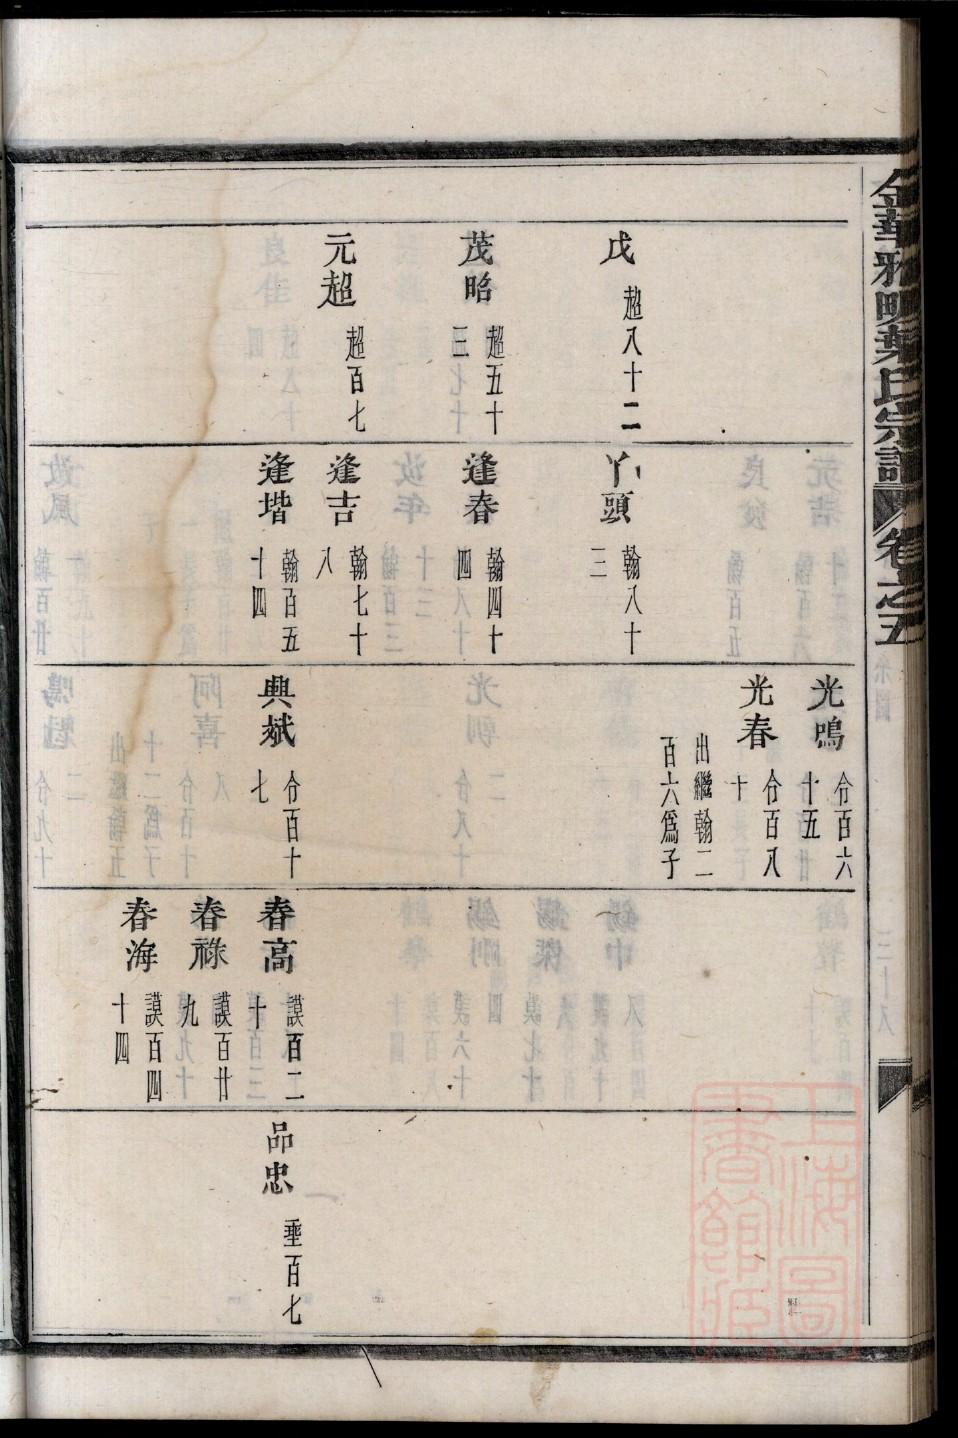 金華雅畈葉氏宗譜 卷之五
戊 超八十二
茂昭 超五十三
元超 超百七
丫頭 翰八十三
逢春 翰四十四
逢吉 翰七十八
逢堦 翰百五十四
光鳴 仝百六十五
光春 仝百八十 出繼翰二百六爲子
興斌 仝百十七
春高 謨百二十
春祿 謨百廿九
春海 謨百四十四
品忠 垂百七
上海圖書館藏